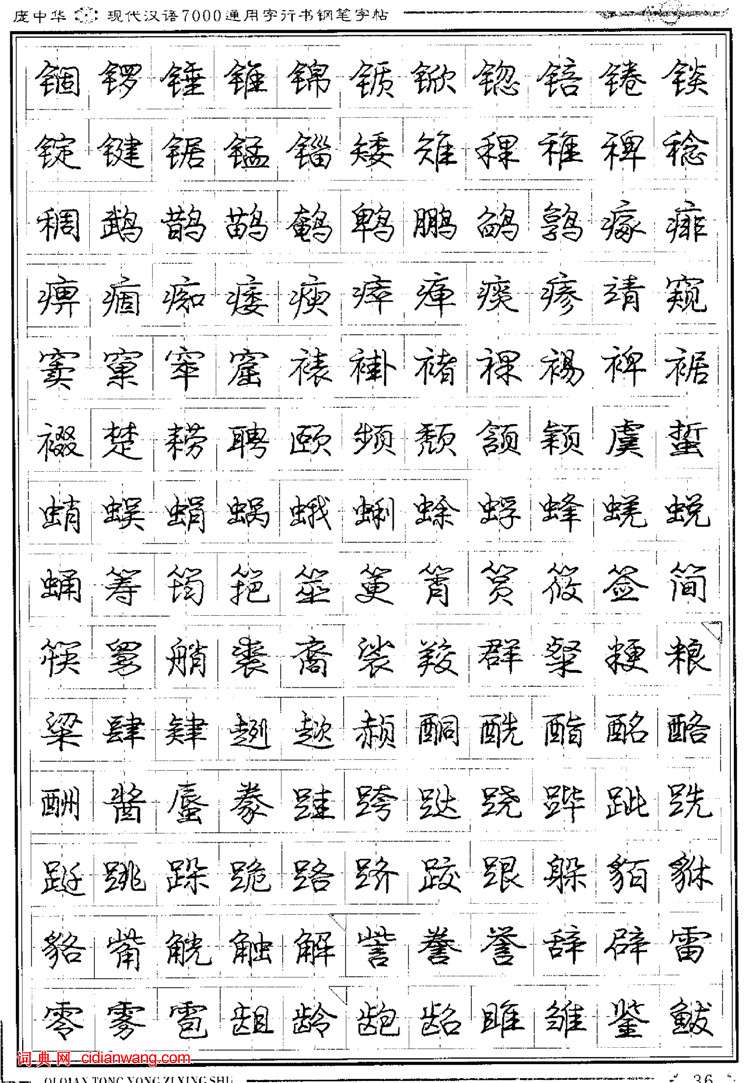 庞中华 现代汉语7000通用字行书钢笔字帖
锢 锣 锤 锥 锦 锧 锨 锪 锫 锩 锬
锭 键 锯 锰 锱 矮 雉 稞 稚 稗 稔
稠 鹉 鹊 鹋 鹌 鹎 鹏 鹐 鹑 瘃 痱
痹 痼 痴 痿 瘐 瘁 瘅 痰 瘆 靖 窥
窦 窠 窣 窟 裱 褂 褚 裸 裼 裨 裾
裰 楚 耢 聘 颐 频 颓 颔 颖 虞 蜇
蛸 蜈 蜎 蜗 蛾 蜊 蜍 蜉 蜂 蜣 蜕
蛹 筹 筠 筢 筮 筻 筲 筼 筱 签 简
筷 詈 艄 裘 裔 裟 羧 群 粲 粳 粮
粱 肆 肄 趔 趑 赪 酮 酰 酯 酩 酪
酬 酱 蜃 豢 跬 跨 跶 跷 跸 跐 跣
跹 跳 跺 跪 路 跻 跤 跟 躲 貊 貅
貉 觜 觥 触 解 訾 誊 誉 辞 辟 雷
零 雾 雹 龃 龄 龅 龆 雎 雏 鉴 鲅
词典网 cidianwang.com
36